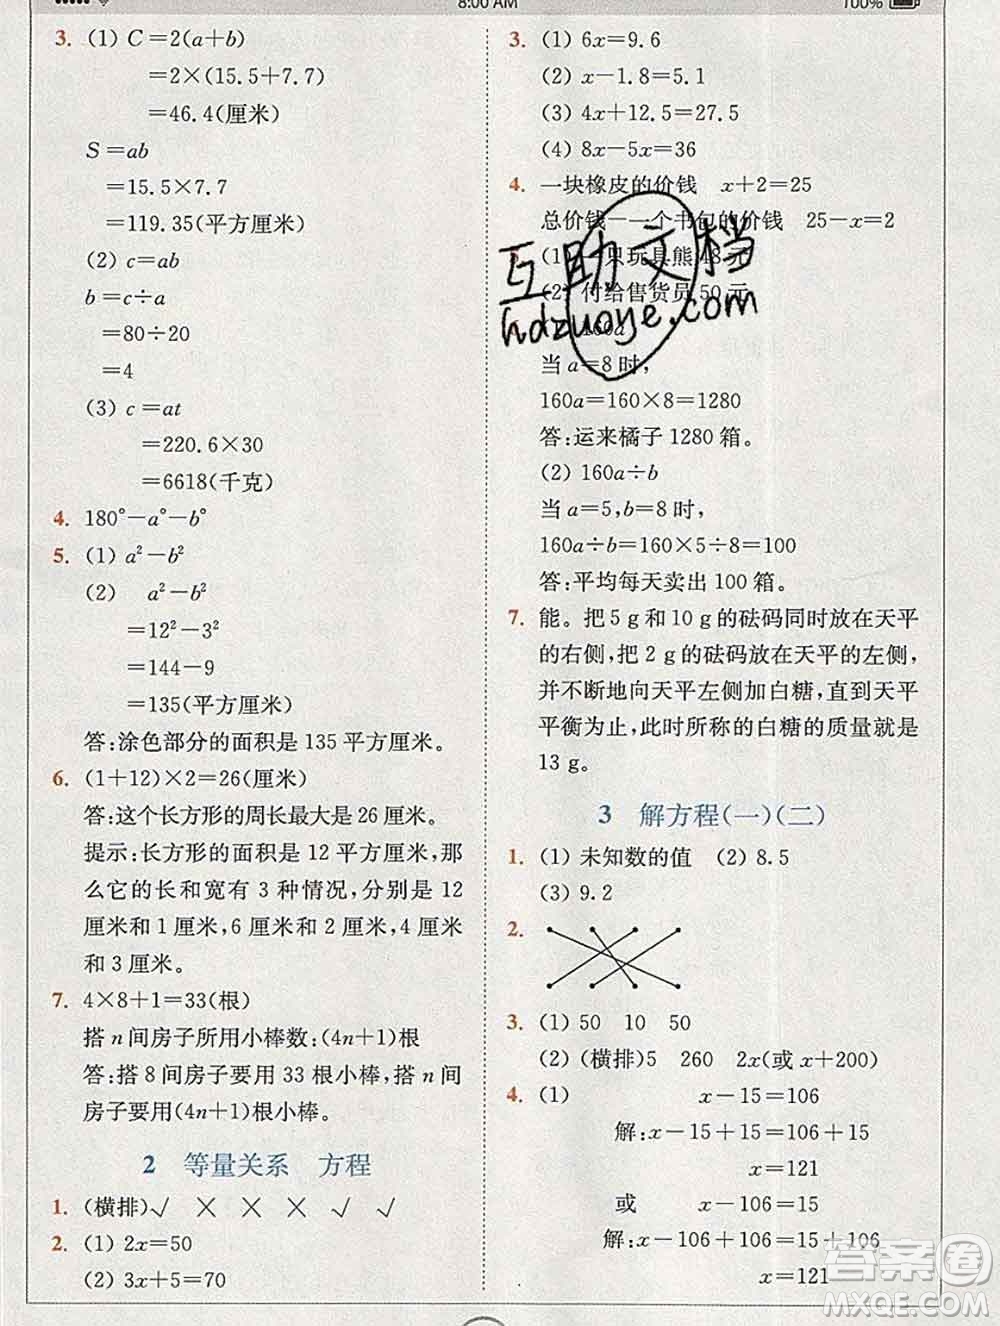 8:00 AM
100%
3. (1) C=2(a+b)
=2×(15.5+7.7)
=46.4(厘米)
S=ab
=15.5×7.7
=119.35(平方厘米)
(2) c=ab
b=c÷a
=80÷20
=4
(3) c=at
=220.6×30
=6618(千克)
4. 180°-a°-b°
5. (1) a²-b²
(2) a²-b²
=12²-3²
=144-9
=135(平方厘米)
答:涂色部分的面积是 135 平方厘米。
6. (1+12)×2=26(厘米)
答:这个长方形的周长最大是 26 厘米。
提示:长方形的面积是 12 平方厘米,那
么它的长和宽有 3 种情况,分别是 12
厘米和 1 厘米,6 厘米和 2 厘米,4 厘米
和 3 厘米。
7. 4×8+1=33(根)
搭 n 间房子所用小棒数:(4n+1)根
答:搭 8 间房子要用 33 根小棒,搭 n 间
房子要用(4n+1)根小棒。
2 等量关系 方程
1. (横排)√ × × × √ √
2. (1) 2x=50
(2) 3x+5=70
3. (1) 6x=9.6
(2) x-1.8=5.1
(3) 4x+12.5=27.5
(4) 8x-5x=36
4. 一块橡皮的价钱 x+2=25
总价钱-一个书包的价钱 25-x=2
(1) 只玩具熊 48 元
(2) 付给售货员 50 元
160a
当 a=8 时,
160a=160×8=1280
答:运来橘子 1280 箱。
(2) 160a÷b
当 a=5,b=8 时,
160a÷b=160×5÷8=100
答:平均每天卖出 100 箱。
7. 能。把 5 g 和 10 g 的砝码同时放在天平
的右侧,把 2 g 的砝码放在天平的左侧,
并不断地向天平左侧加白糖,直到天平
平衡为止,此时所称的白糖的质量就是
13 g。
3 解方程(一)(二)
1. (1) 未知数的值 (2) 8.5
(3) 9.2
2.
3. (1) 50 10 50
(2) (横排)5 260 2x(或 x+200)
4. (1) x-15=106
解:x-15+15=106+15
x=121
或 x-106=15
解:x-106+106=15+106
x=121
互助文档
hdzuoye.com
答案圈
MXQE.COM